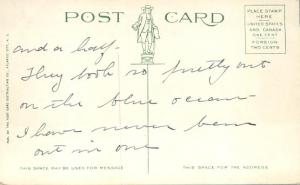 POST CARD
PLACE STAMP
HERE
UNITED STATES
AND CANADA
ONE CENT
FOREIGN
TWO CENTS
and a half.
They look so pretty out
on the blue ocean –
I have never been
out in one
THIS SPACE MAY BE USED FOR MESSAGE
THIS SPACE FOR THE ADDRESS